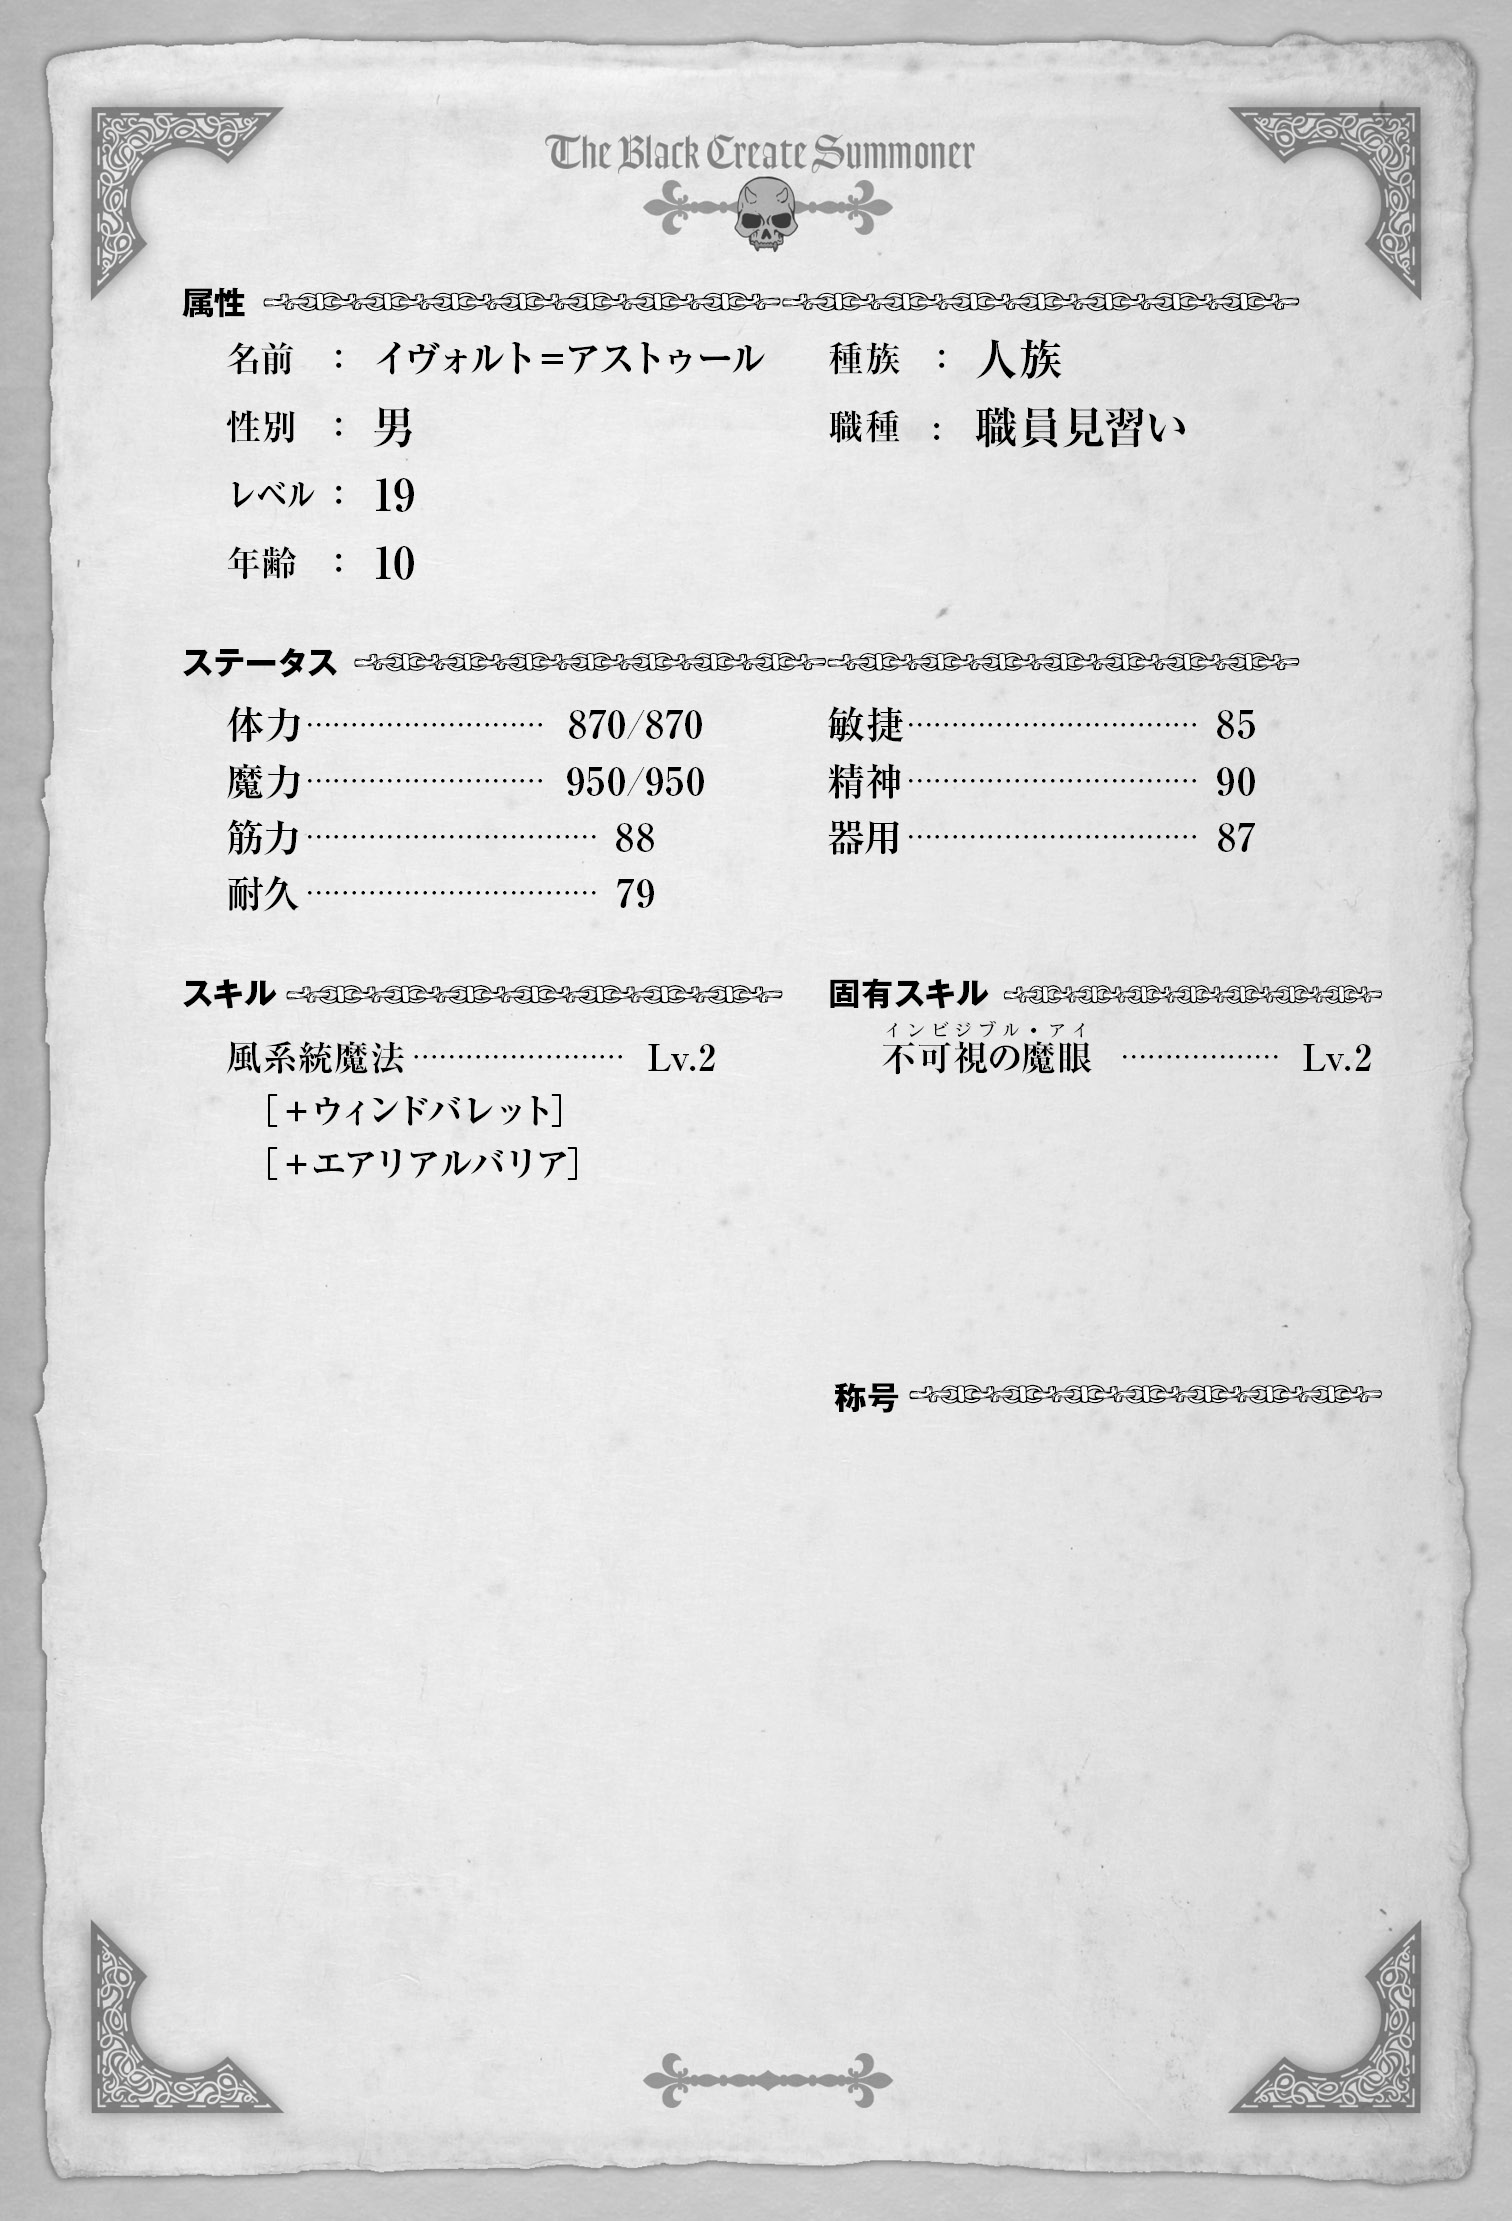 The Black Create Summoner
属性
名前 : イヴォルト=アストゥール
種族 : 人族
性別 : 男
職種 : 職員見習い
レベル : 19
年齢 : 10
ステータス
体力………………………… 870/870
敏捷………………………… 85
魔力………………………… 950/950
精神………………………… 90
筋力………………………… 88
器用………………………… 87
耐久………………………… 79
スキル
風系統魔法…………………… Lv.2
[+ウィンドバレット]
[+エアリアルバリア]
固有スキル
インビジブル・アイ
不可視の魔眼 ……………… Lv.2
称号